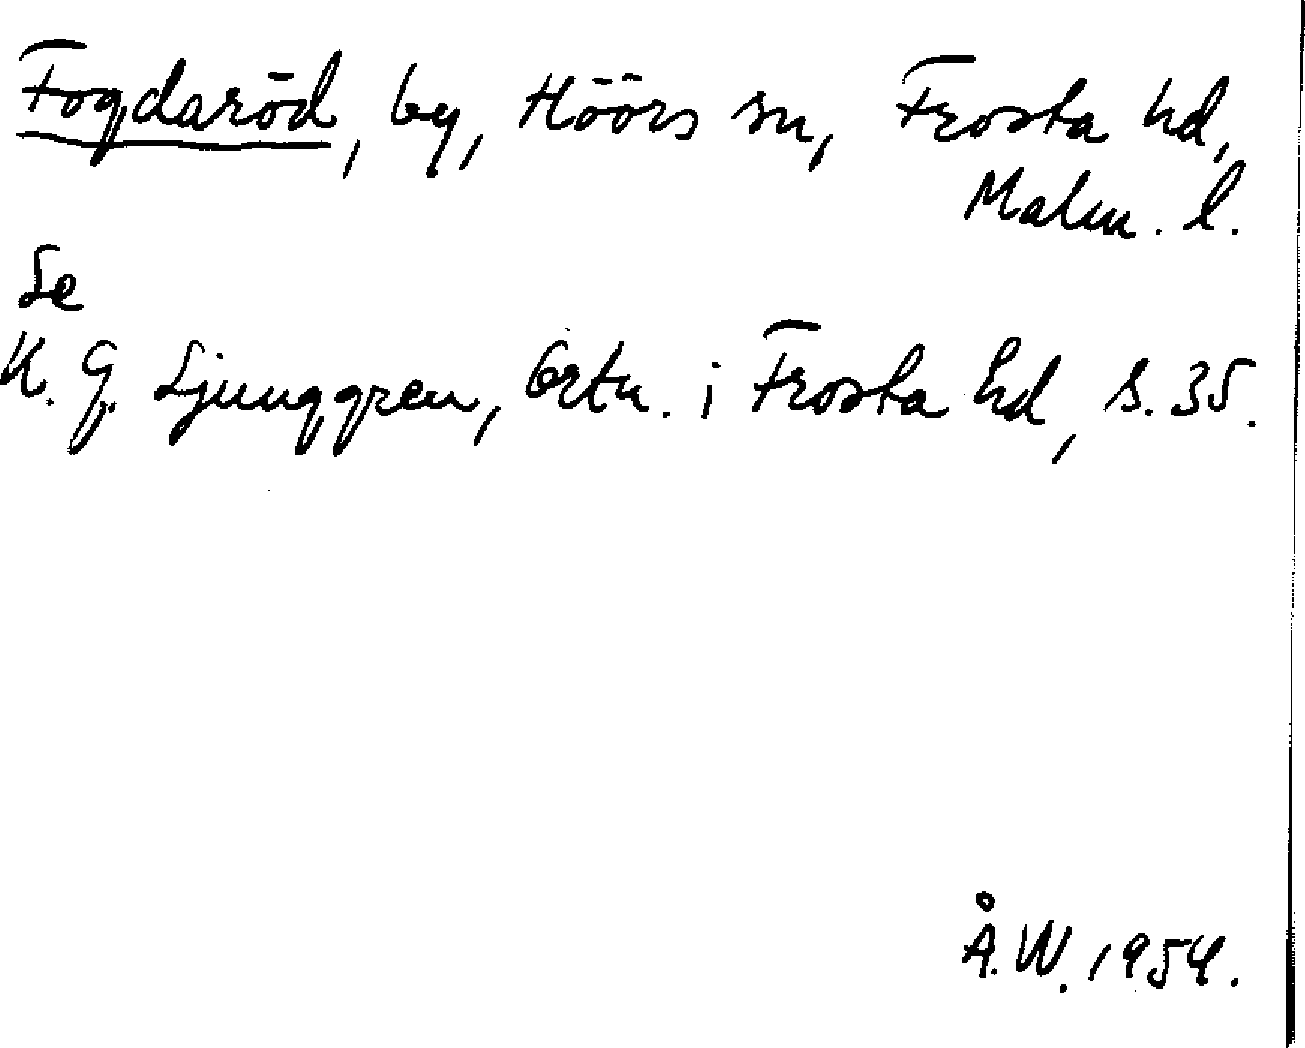 Fogdaröd, by, Höörs sn, Frosta hd,
Malm. l.
Se
K. G. Ljunggren, Ortn. i Frosta hd, s. 35.
Å. W. 1954.